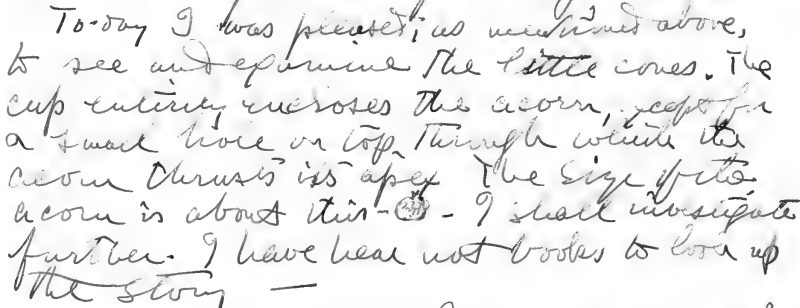 To-day I was pleased, as mentioned above,
to see and examine the little cones. The
cup entirely encloses the acorn, except for
a small hole on top, through which the
acorn thrusts its apex. The size of the
acorn is about this - - I shall investigate
further. I have hear not books to look up
the story —